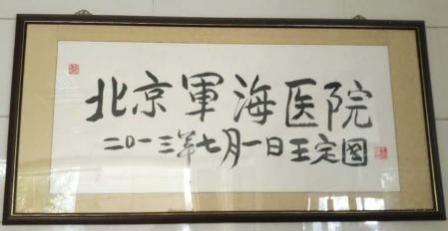 北京軍海医院
二〇一三年七月一日王定国